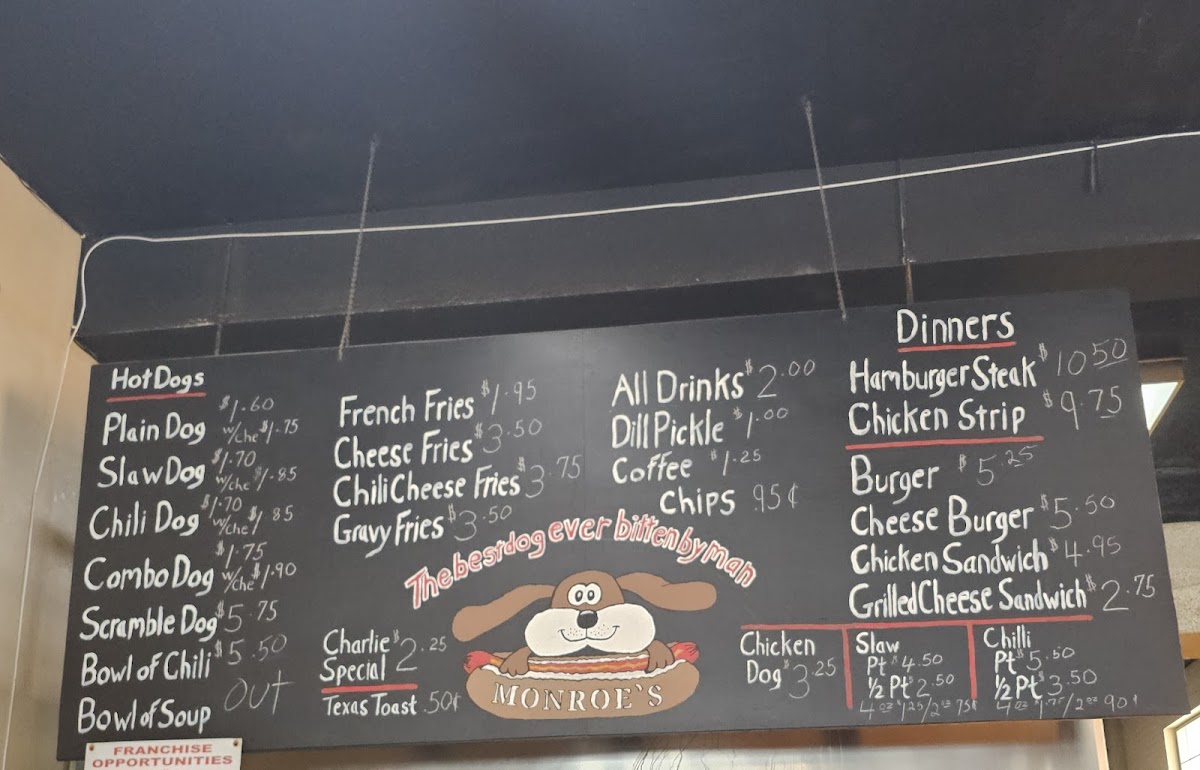 Hot Dogs
Plain Dog $1.60
w/che $1.75
Slaw Dog $1.70
w/che $1.85
Chili Dog $1.70
w/che $1.85
Combo Dog $1.75
w/che $1.90
Scramble Dog $5.75
Bowl of Chili $5.50
Bowl of Soup OUT
FRANCHISE
OPPORTUNITIES
French Fries $1.95
Cheese Fries $3.50
Chili Cheese Fries $3.75
Gravy Fries $3.50
Charlie $2.25
Special
Texas Toast .50¢
All Drinks $2.00
Dill Pickle $1.00
Coffee $1.25
Chips .95¢
The best dog ever bitten by man
MONROE'S
Dinners
Hamburger Steak $10.50
Chicken Strip $9.75
Burger $5.25
Cheese Burger $5.50
Chicken Sandwich $4.95
Grilled Cheese Sandwich $2.75
Chicken
Dog $3.25
Slaw
Pt $4.50
1/2 Pt $2.50
4 oz $1.25/2 oz 75¢
Chilli
Pt $5.50
1/2 Pt $3.50
4 oz $1.75/2 oz 90¢